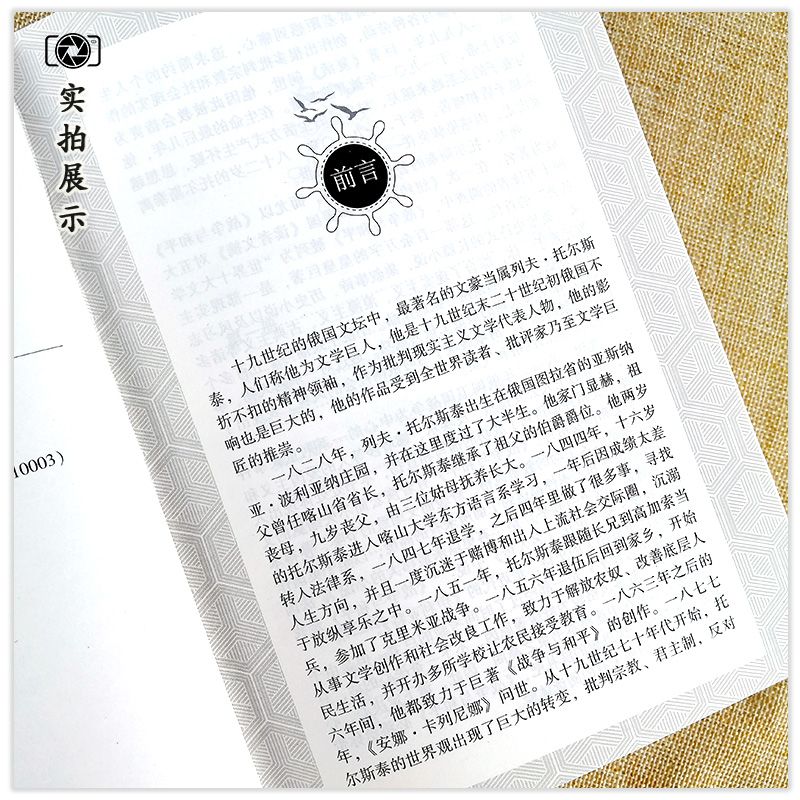 实拍展示
10003)
前言
十九世纪的俄国文坛中，最著名的文豪当属列夫·托尔斯
泰，人们称他为文学巨人，他是十九世纪末二十世纪初俄国不
折不扣的精神领袖，作为批判现实主义文学代表人物，他的影
响也是巨大的，他的作品受到全世界读者、批评家乃至文学巨
匠的推崇。
一八二八年，列夫·托尔斯泰出生在俄国图拉省的亚斯纳
亚·波利亚纳庄园，并在这里度过了大半生。他家门显赫，祖
父曾任喀山省省长，托尔斯泰继承了祖父的伯爵爵位。他两岁
丧母，九岁丧父，由三位姑母抚养长大。一八四四年，十六岁
的托尔斯泰进入喀山大学东方语言系学习，一年后因成绩太差
转入法律系，一八四七年退学，之后四年里做了很多事，寻找
人生方向，并且一度沉迷于赌博和出入上流社会交际圈，沉溺
于放纵享乐之中。一八五一年，托尔斯泰跟随长兄到高加索当
兵，参加了克里米亚战争。一八五六年退伍后回到家乡，开始
从事文学创作和社会改良工作，致力于解放农奴、改善底层人
民生活，并开办多所学校让农民接受教育。一八六三年之后的
六年间，他都致力于巨著《战争与和平》的创作。一八七七
年，《安娜·卡列尼娜》问世。从十九世纪七十年代开始，托
尔斯泰的世界观出现了巨大的转变，批判宗教、君主制，反对